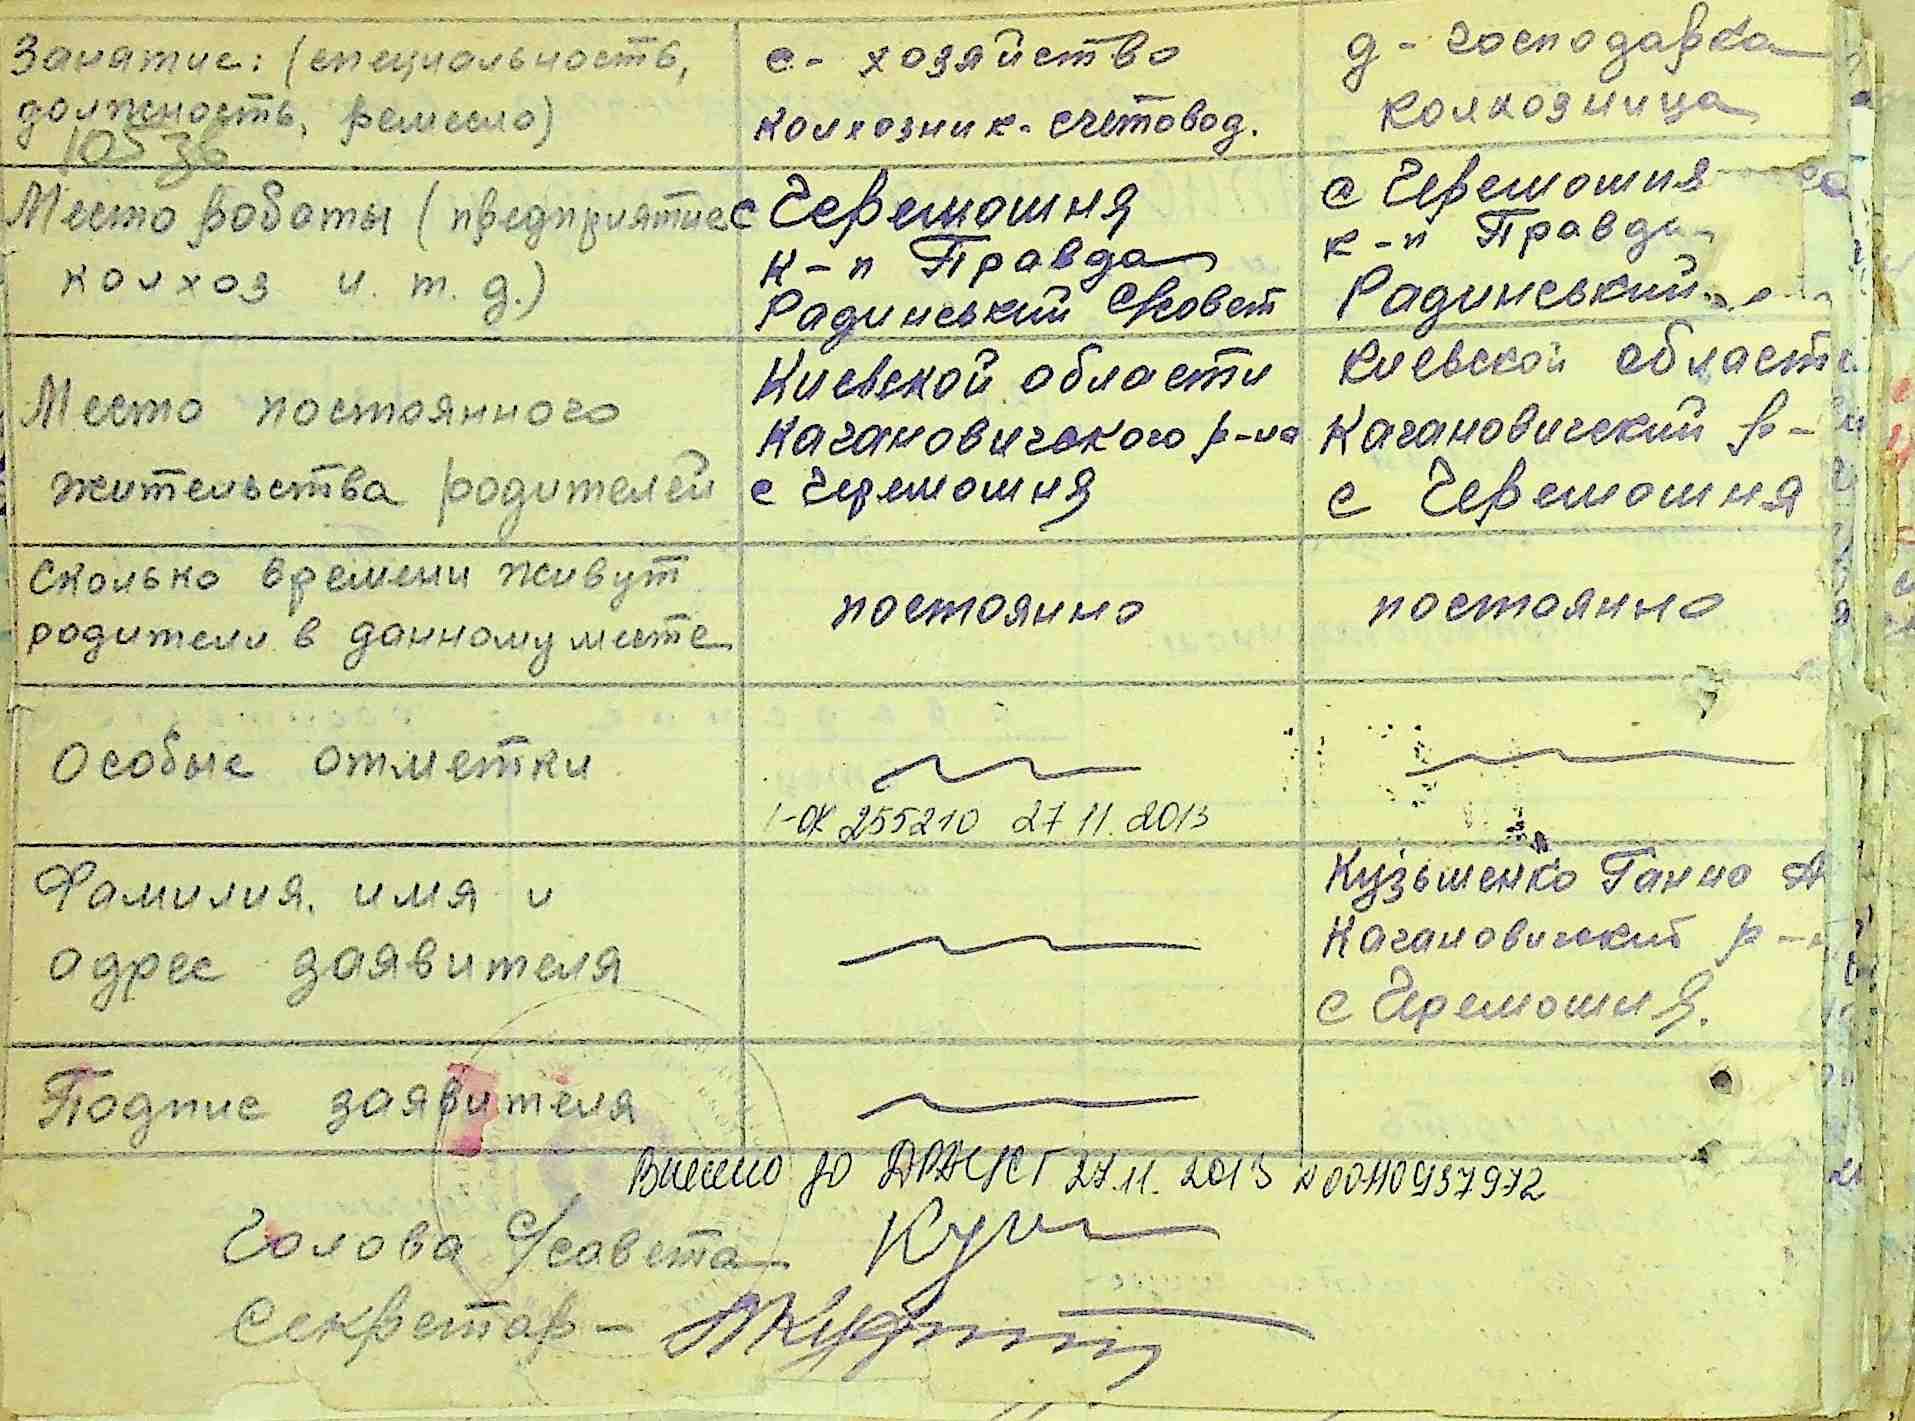 Занатие: (специальность,
должность, ремесло)
с- хозяйство
колхозник-счетовод.
д - господарка
колхозница
Место работы (предприятие
колхоз и. т. д.)
с Черемошня
к-п Правда
Радинський С/совет
с Черемошня
к-п Правда
Радинський
Место постоянного
жительства родителей
Киевской области
Кагановичского р-на
с Черемошня
Киевской области
Кагановичский р-
с Черемошня
Сколько времени живут
родители в данному месте
постоянно
постоянно
Особые отметки
I-ОК 255210 27 11. 2013
Фамилия, имя и
адрес заявителя
Кузьменко Ганна А
Кагановичский р-
с Черемошня.
Подпис заявителя
Внесено до ДРАЦСГ 27.11. 2013 N00110937972
Голова С/совета
Секретар -